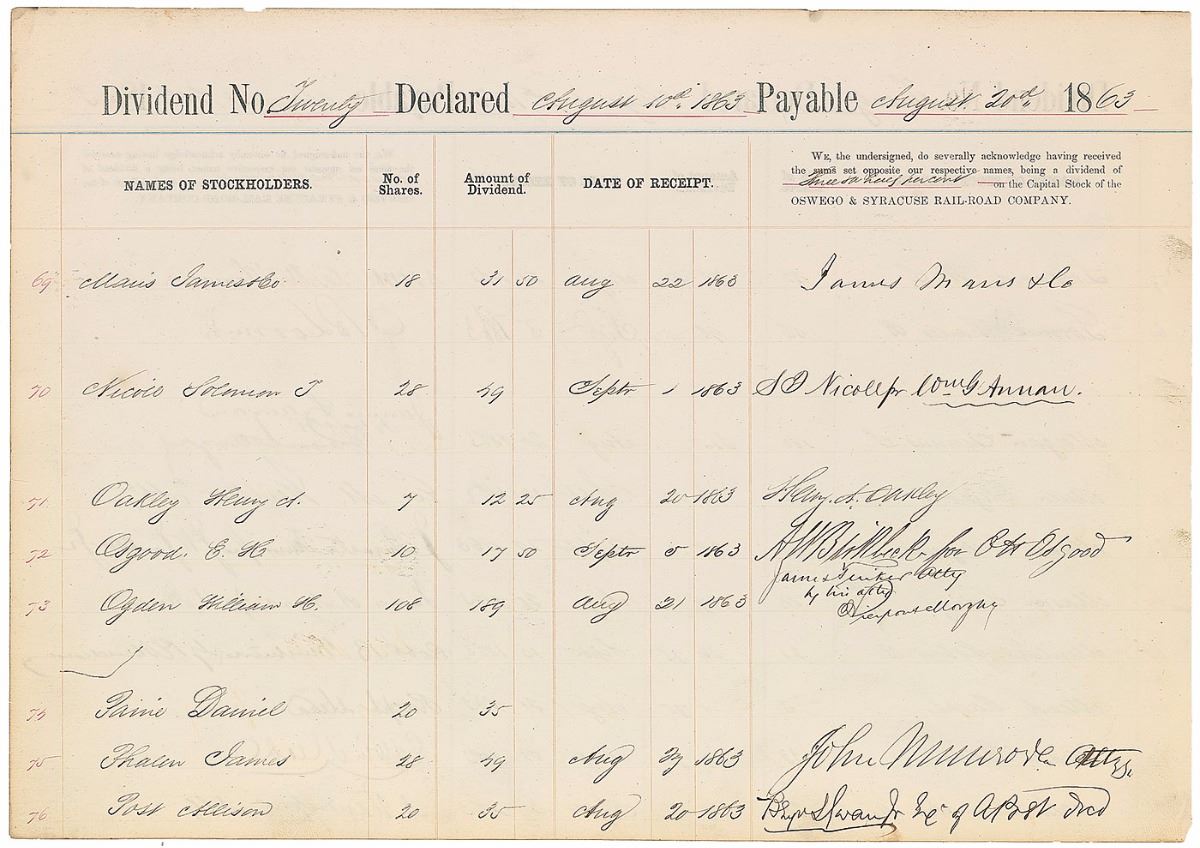 Dividend No Twenty Declared August 10th 1863 Payable August 20th 1863
NAMES OF STOCKHOLDERS. No. of Shares. Amount of Dividend. DATE OF RECEIPT.
WE, the undersigned, do severally acknowledge having received
the sums set opposite our respective names, being a dividend of
Three & a half percent on the Capital Stock of the
OSWEGO & SYRACUSE RAIL-ROAD COMPANY.
69 Maris James & Co 18 31 50 Aug 22 1863 James Maris & Co
70 Nicoll Solomon T 28 49 Septr 1 1863 S T Nicoll pr Wm G Annan.
71 Oakley Henry A. 7 12 25 Aug 20 1863 Henry A. Oakley
72 Osgood. E. H 10 17 50 Septr 5 1863 for E H Osgood
James Tinker Atty
73 Ogden William H. 108 189 Aug 21 1863 by his atty
Pierpont Morgan
74 Paine Daniel 20 35
75 Phalen James 28 49 Aug 1863 John Munroe Attys
76 Post Allison 20 35 Aug 20 1863 Benj L Swan Jr Exr of A Post decd